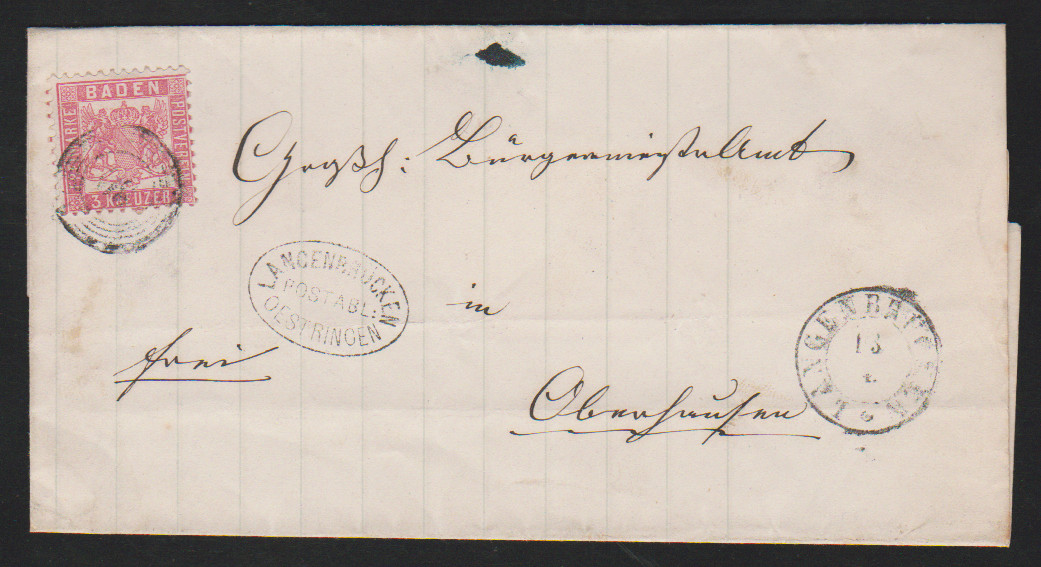 BADEN
FREIMARKE
POSTVEREIN
3 KREUZER
Grossh: Bürgermeisteramt
LANGENBRÜCKEN
POSTABL:
OESTRINGEN
in
frei
Oberhausen
LANGENBRUCKEN
13